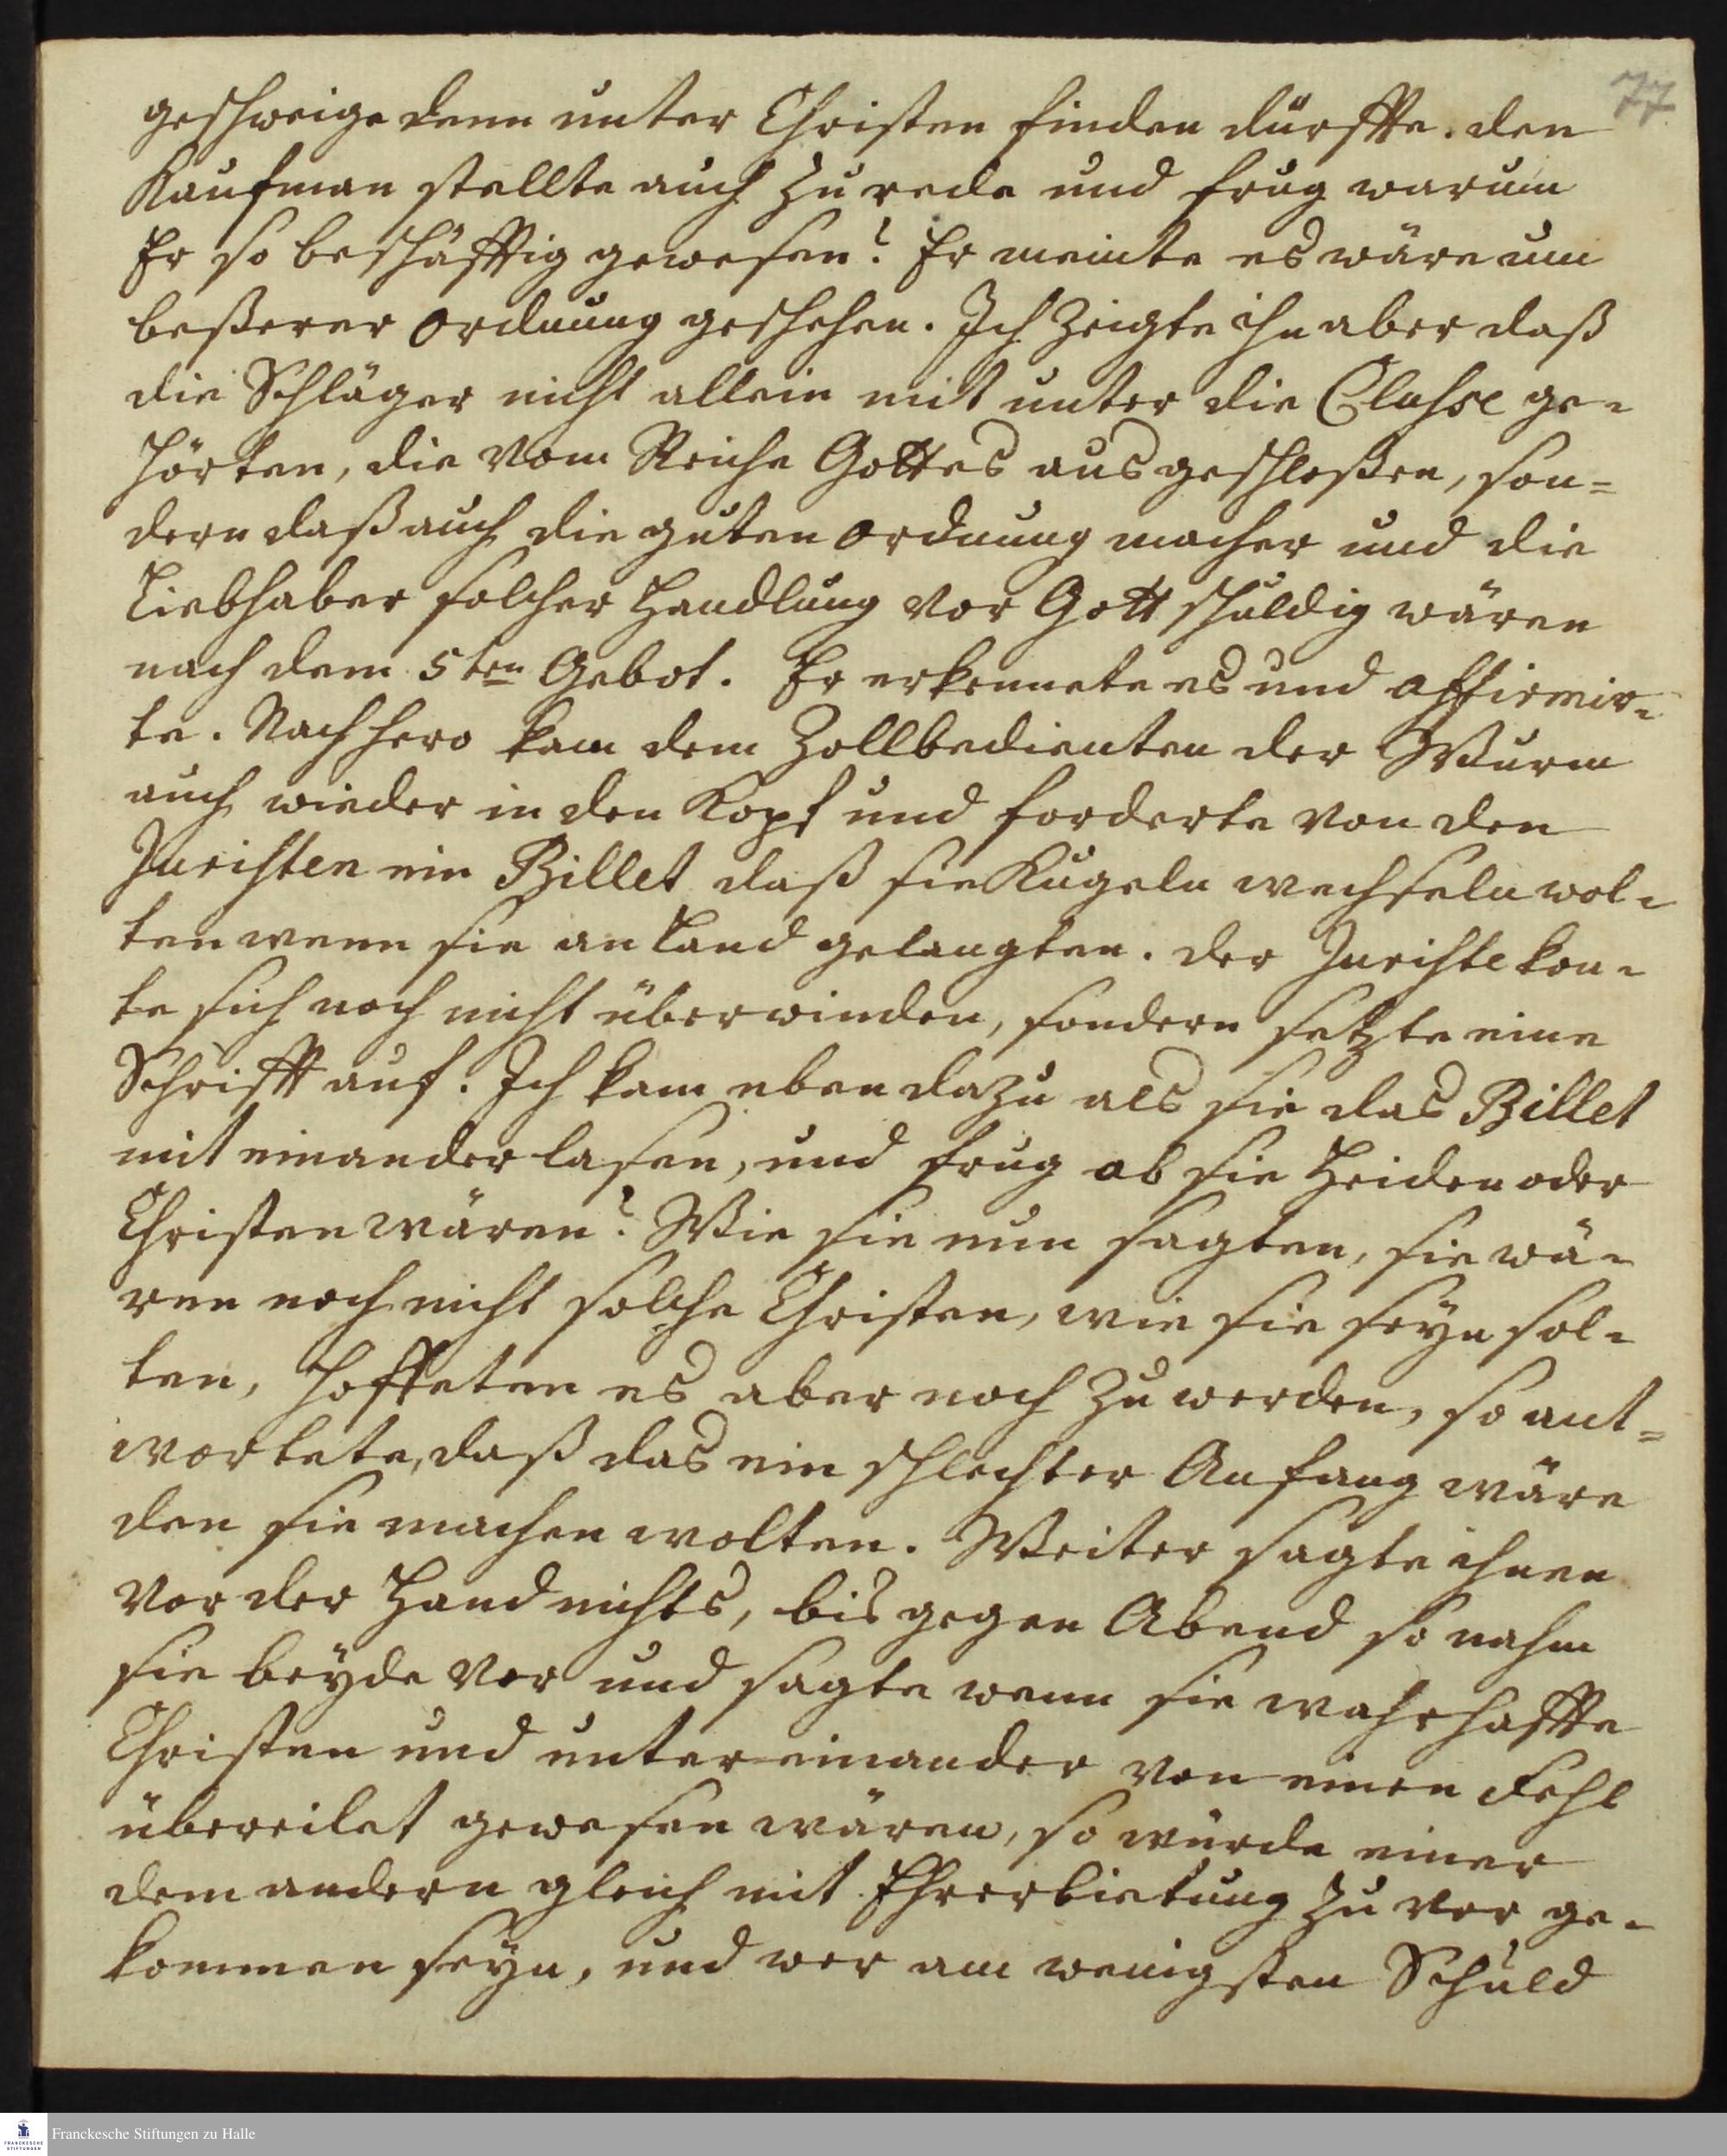 77
geschweige denn unter Christen finden dürffte. den
Kaufman stellte auch zu rede und frug warum
Er so beschäfftig gewesen? Er meinte es wäre um
beßerer Ordnung geschehen. Ich zeigte ihn aber daß
die Schläger nicht allein mit unter die Classe ge-
hörten, die vom Reiche Gottes ausgeschloßen, son=
dern daß auch die guten Ordnung macher und die
Liebhaber solcher Handlung vor Gott schuldig wären
nach dem 5ten Gebot. Er erkennete es und affirmir-
te. Nachhero kam dem Zollbedienten der Wurm
auch wieder in den Kopf und forderte von den
Juristen ein Billet daß sie Kugeln wechseln wol-
ten wenn sie an Land gelangten. der Juriste kon-
te sich noch nicht überwinden, sondern setzte eine
Schrifft auf. Ich kam eben dazu als sie das Billet
mit einander lasen, und frug ob sie Heiden oder
Christen wären? Wie sie nun sagten, sie wä-
ren noch nicht solche Christen, wie sie seyn sol-
ten, hoffeten es aber noch zu werden, so ant=
wortete, daß das ein schlechter Anfang wäre
den sie machen wolten. Weiter sagte ihnen
vor der Hand nichts, bis gegen Abend so nahm
sie beyde vor und sagte wenn sie wahrhaffte
Christen und unter einander von einen Fehl
übereilet gewesen wären, so würde einer
dem andern gleich mit Ehrerbietung zu vor ge-
kommen seyn, und wer am wenigsten Schuld
Franckesche Stiftungen zu Halle
FRANCKESCHE
STIFTUNGEN